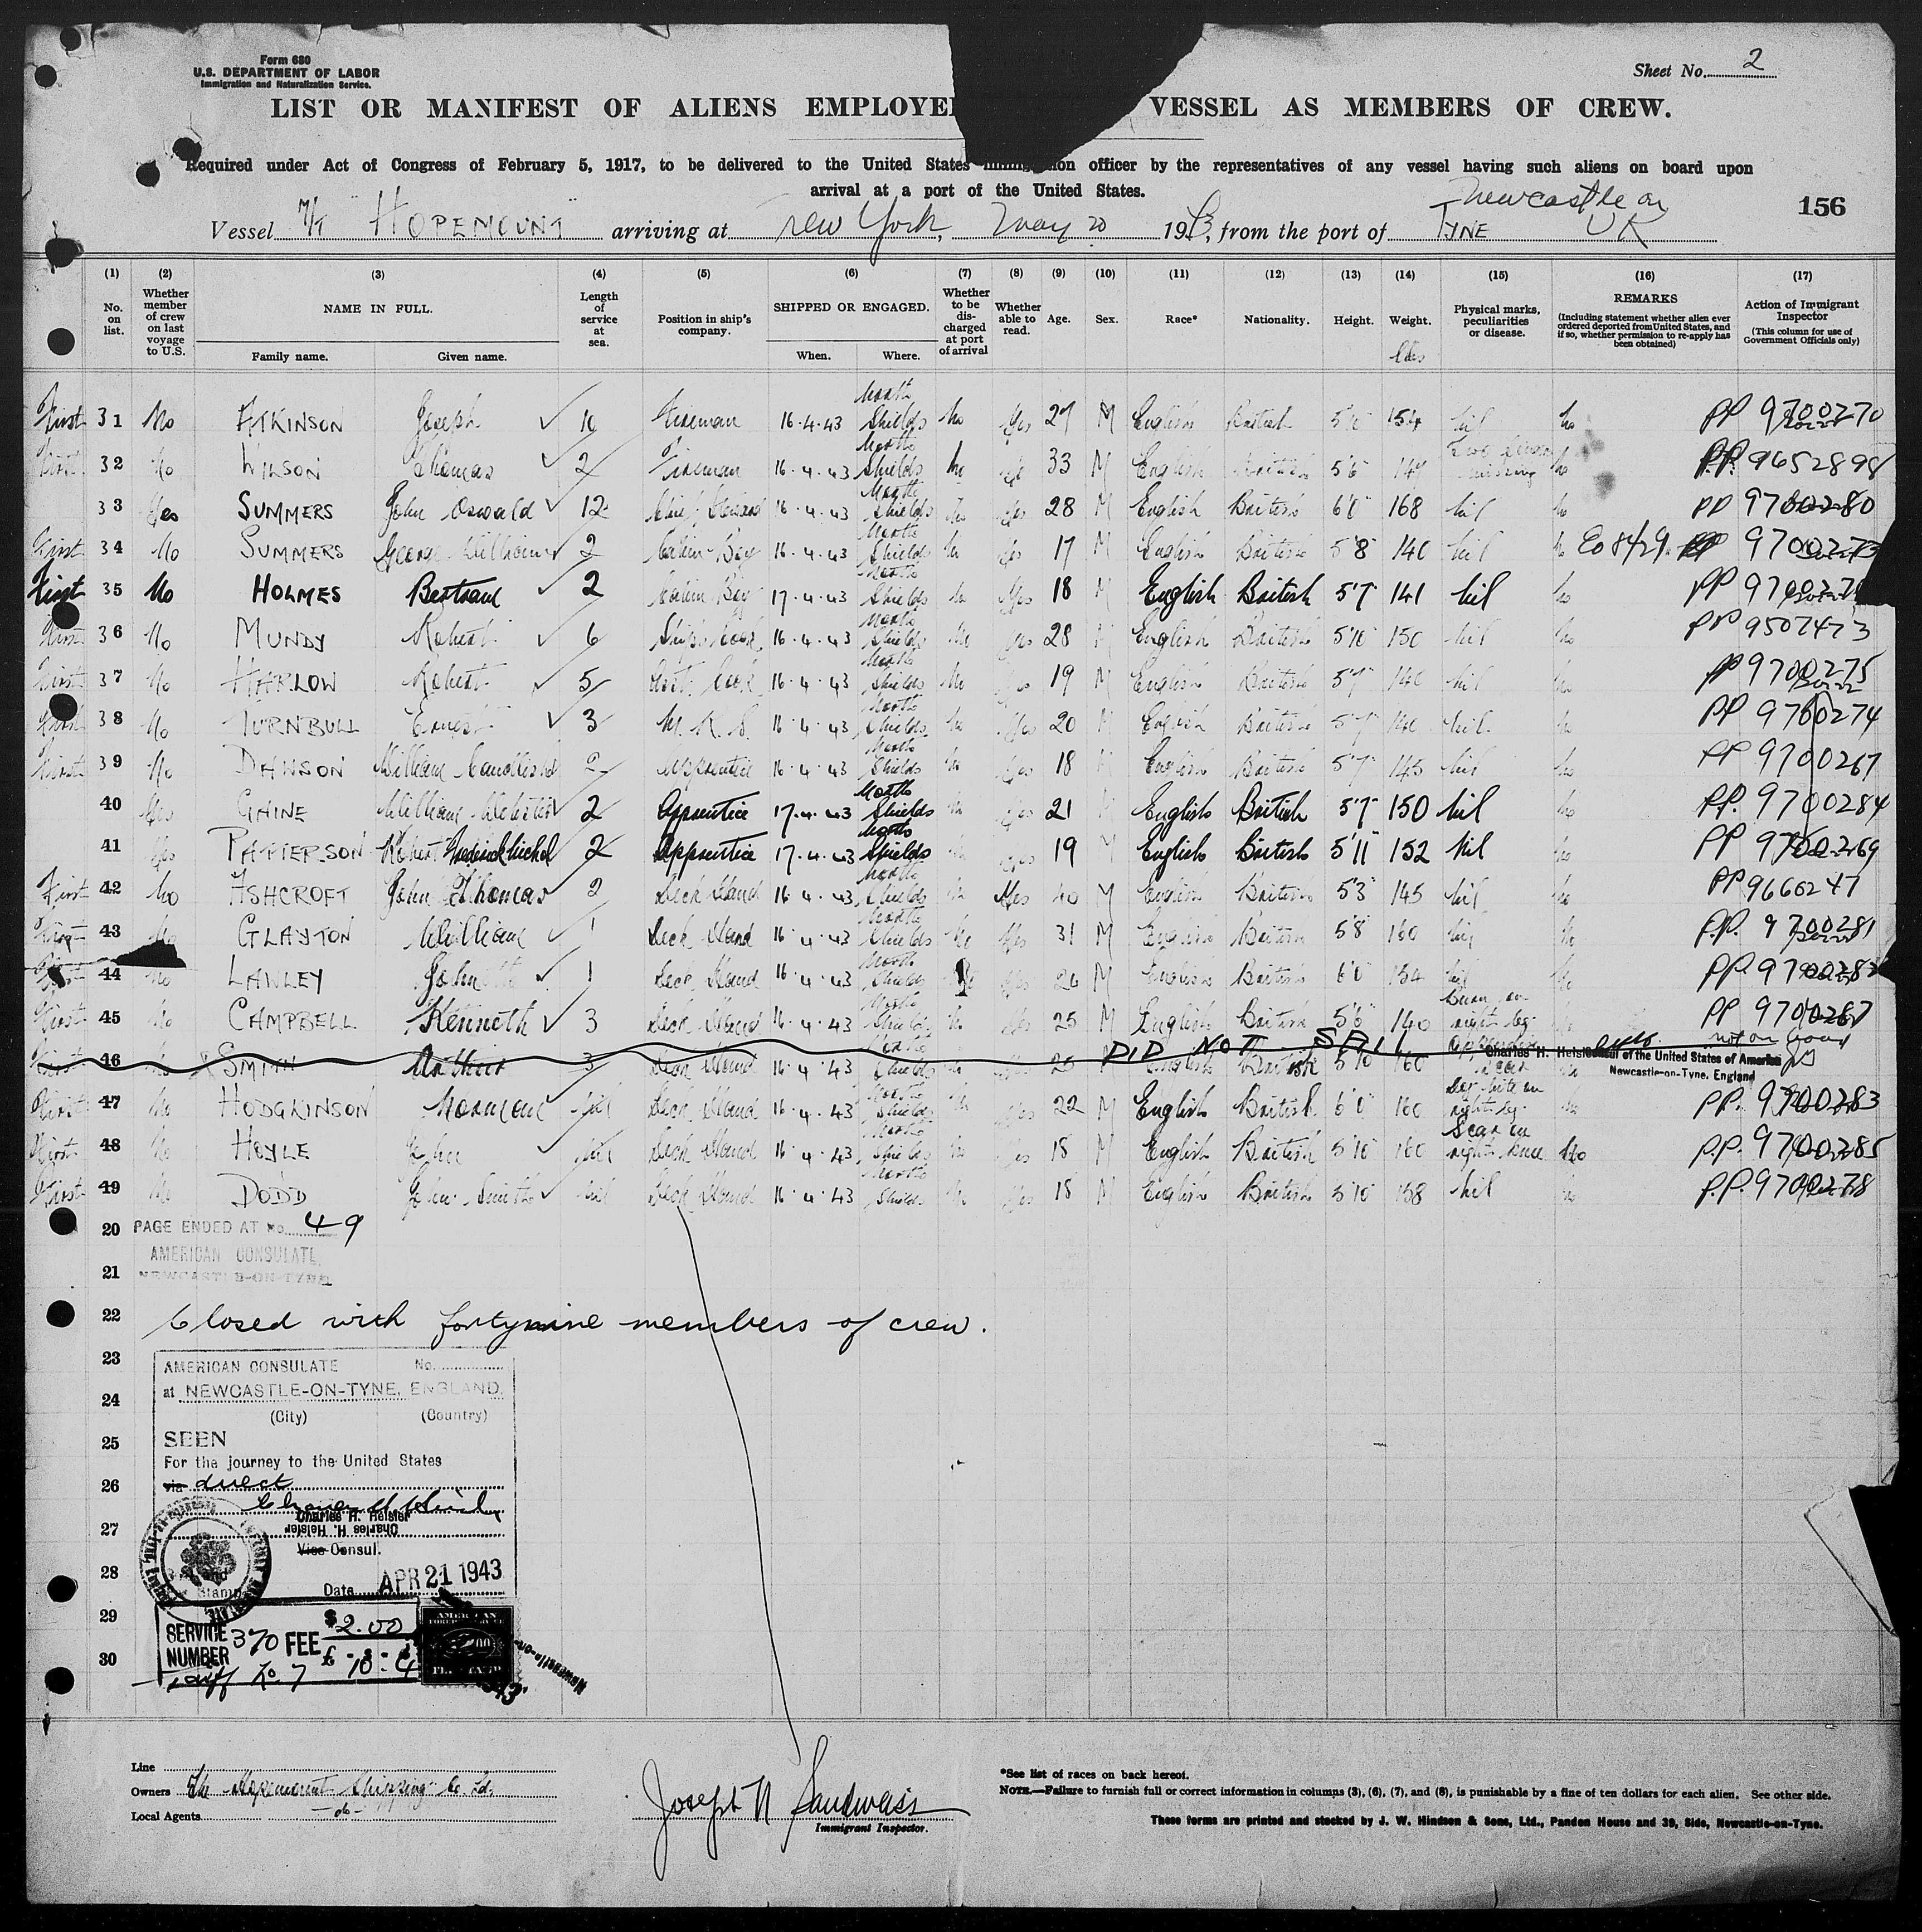 Form 680
U.S. DEPARTMENT OF LABOR
Immigration and Naturalization Service.
Sheet No. 2
LIST OR MANIFEST OF ALIENS EMPLOYE VESSEL AS MEMBERS OF CREW.
Required under Act of Congress of February 5, 1917, to be delivered to the United States officer by the representatives of any vessel having such aliens on board upon
arrival at a port of the United States.
Vessel M/T "HOPEMOUNT" arriving at New York, May 20 1943, from the port of Newcastle on TYNE UK
156
(1) (2) (3) (4) (5) (6) (7) (8) (9) (10) (11) (12) (13) (14) (15) (16) (17)
No. on list. Whether member of crew on last voyage to U.S. NAME IN FULL. Family name. Given name. Length of service at sea. Position in ship's company. SHIPPED OR ENGAGED. When. Where. Whether to be discharged at port of arrival Whether able to read. Age. Sex. Race* Nationality. Height. Weight. lbs Physical marks, peculiarities or disease. REMARKS (Including statement whether alien ever ordered deported from United States, and if so, whether permission to re-apply has been obtained) Action of Immigrant Inspector (This column for use of Government Officials only)
First 31 No ATKINSON Joseph 10 Fireman 16.4.43 North Shields No Yes 27 M English British 5'6" 154 nil no PP 9700270
First 32 No WILSON Thomas 2 Fireman 16.4.43 North Shields No Yes 33 M English British 5'6" 147 missing no P.P. 9652898
33 Yes SUMMERS John Oswald 12 Chief Steward 16.4.43 North Shields No Yes 28 M English British 6'0" 168 nil no PP 9700280
First 34 No SUMMERS George William 2 Cabin Boy 16.4.43 North Shields No Yes 17 M English British 5'8" 140 nil no Eo 8429 9700273
First 35 No HOLMES Bertram 2 Cabin Boy 17.4.43 North Shields No Yes 18 M English British 5'7" 141 nil no PP
First 36 No MUNDY Robert 6 Ships Cook 16.4.43 North Shields No Yes 28 M English British 5'10" 150 nil no PP 9507473
First 37 No HARLOW Robert 5 Asst. Cook 16.4.43 North Shields No Yes 19 M English British 5'7" 140 nil no PP 9700275
First 38 No TURNBULL Ernest 3 M.R.S. 16.4.43 North Shields No Yes 20 M English British 5'7" 140 nil no PP 9700274
First 39 No DAWSON William 2 Apprentice 16.4.43 North Shields No Yes 18 M English British 5'7" 145 nil no PP 9700267
40 Yes GAINE William Webster 2 Apprentice 17.4.43 North Shields No Yes 21 M English British 5'7" 150 nil no P.P. 9700284
41 Yes PATTERSON Robert 2 Apprentice 17.4.43 North Shields No Yes 19 M English British 5'11" 152 nil no PP 9700269
First 42 No ASHCROFT John Thomas 2 Deck Hand 16.4.43 North Shields No Yes 40 M English British 5'3" 145 nil no PP 9660247
First 43 No GLAYTON William 1 Deck Hand 16.4.43 North Shields No Yes 31 M English British 5'8" 160 nil no P.P. 9700281
First 44 No LAWLEY John 1 Deck Hand 16.4.43 North Shields Yes 26 M English British 6'0" 154 nil no P.P. 9700282
First 45 No CAMPBELL Kenneth 3 Deck Hand 16.4.43 North Shields No Yes 25 M English British 5'6" 140 right leg PP 9700287
First 46 X SMITH Arthur 3 Deck Hand 16.4.43 North Shields 26 M English British 5'10" 160 DID NOT SAIL not on board
Charles H. Heisler Consul of the United States of America
Newcastle-on-Tyne, England
First 47 No HODGKINSON Norman nil Deck Hand 16.4.43 North Shields No Yes 22 M English British 6'0" 160 Dog bite on right leg no P.P. 9700283
First 48 No HOYLE John nil Deck Hand 16.4.43 North Shields No Yes 18 M English British 5'10" 160 Scar on right knee No P.P. 9700285
First 49 No DODD John Smith nil Deck Hand 16.4.43 North Shields No Yes 18 M English British 5'10" 158 nil no P.P. 9700278
20 PAGE ENDED AT No. 49
AMERICAN CONSULATE,
21 NEWCASTLE-ON-TYNE
22 Closed with fortynine members of crew.
23 AMERICAN CONSULATE No.
24 at NEWCASTLE-ON-TYNE, ENGLAND.
(City) (Country)
25 SEEN
For the journey to the United States
26 via direct
Charles H. Heisler
27 Charles H. Heisler
Charles H. Heisler
Vice Consul.
28 Date APR 21 1943
29 SERVICE NUMBER 370 FEE $2.00
30 £ -10-4
Tariff No. 7
AMERICAN
Newcastle-on-
Line
Owners The Hopemount Shipping Co. Ld.
Local Agents -do-
Joseph N Landweiss
Immigrant Inspector.
*See list of races on back hereof.
NOTE.—Failure to furnish full or correct information in columns (3), (6), (7), and (8), is punishable by a fine of ten dollars for each alien. See other side.
These forms are printed and stocked by J. W. Hindson & Sons, Ltd., Pandon House and 39, Side, Newcastle-on-Tyne.